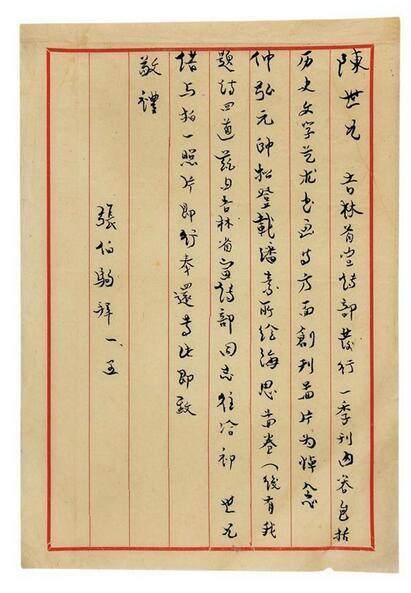 陳世兄 吉林省宣傳部發行一季刊内容包括
历史文学艺术书画等方面創刊画片为悼念
仲弘元帥拟登載潘素所绘海思啚卷(後有我
题詩四首兹由吉林省宣傳部同志往洽祈 世兄
借与拍一照片即行奉還专此即致
敬禮
張伯駒拜 一、五